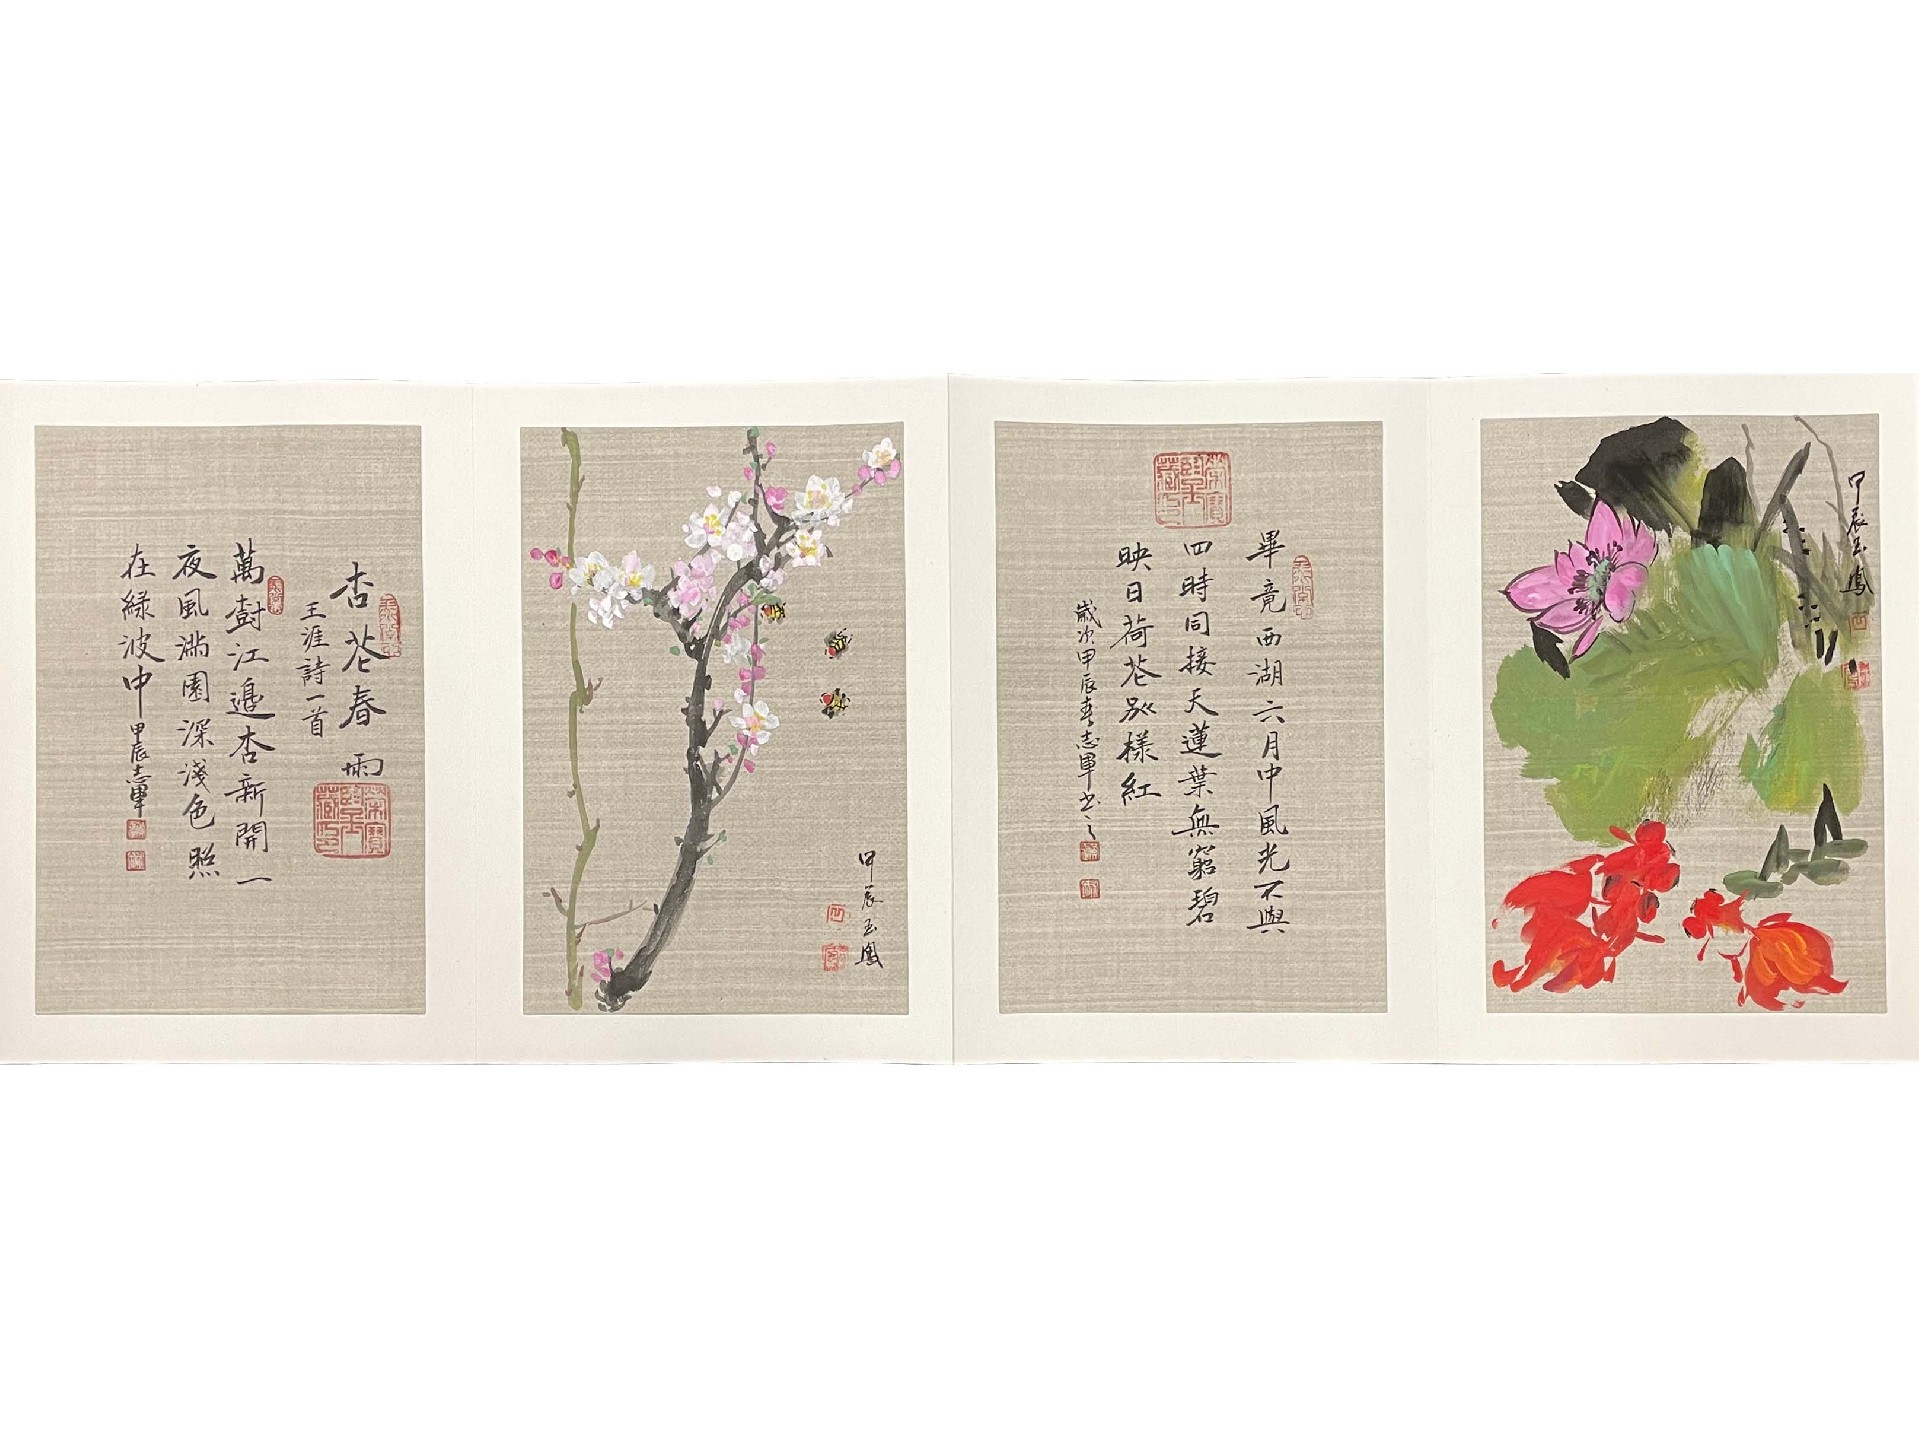 杏花春雨
王涯詩一首
萬樹江邊杏新開一
夜風滿園深淺色照
在綠波中
甲辰志軍
甲辰玉鳳
畢竟西湖六月中風光不與
四時同接天蓮葉無窮碧
映日荷花別樣紅
歲次甲辰春志軍书之
甲辰玉鳳